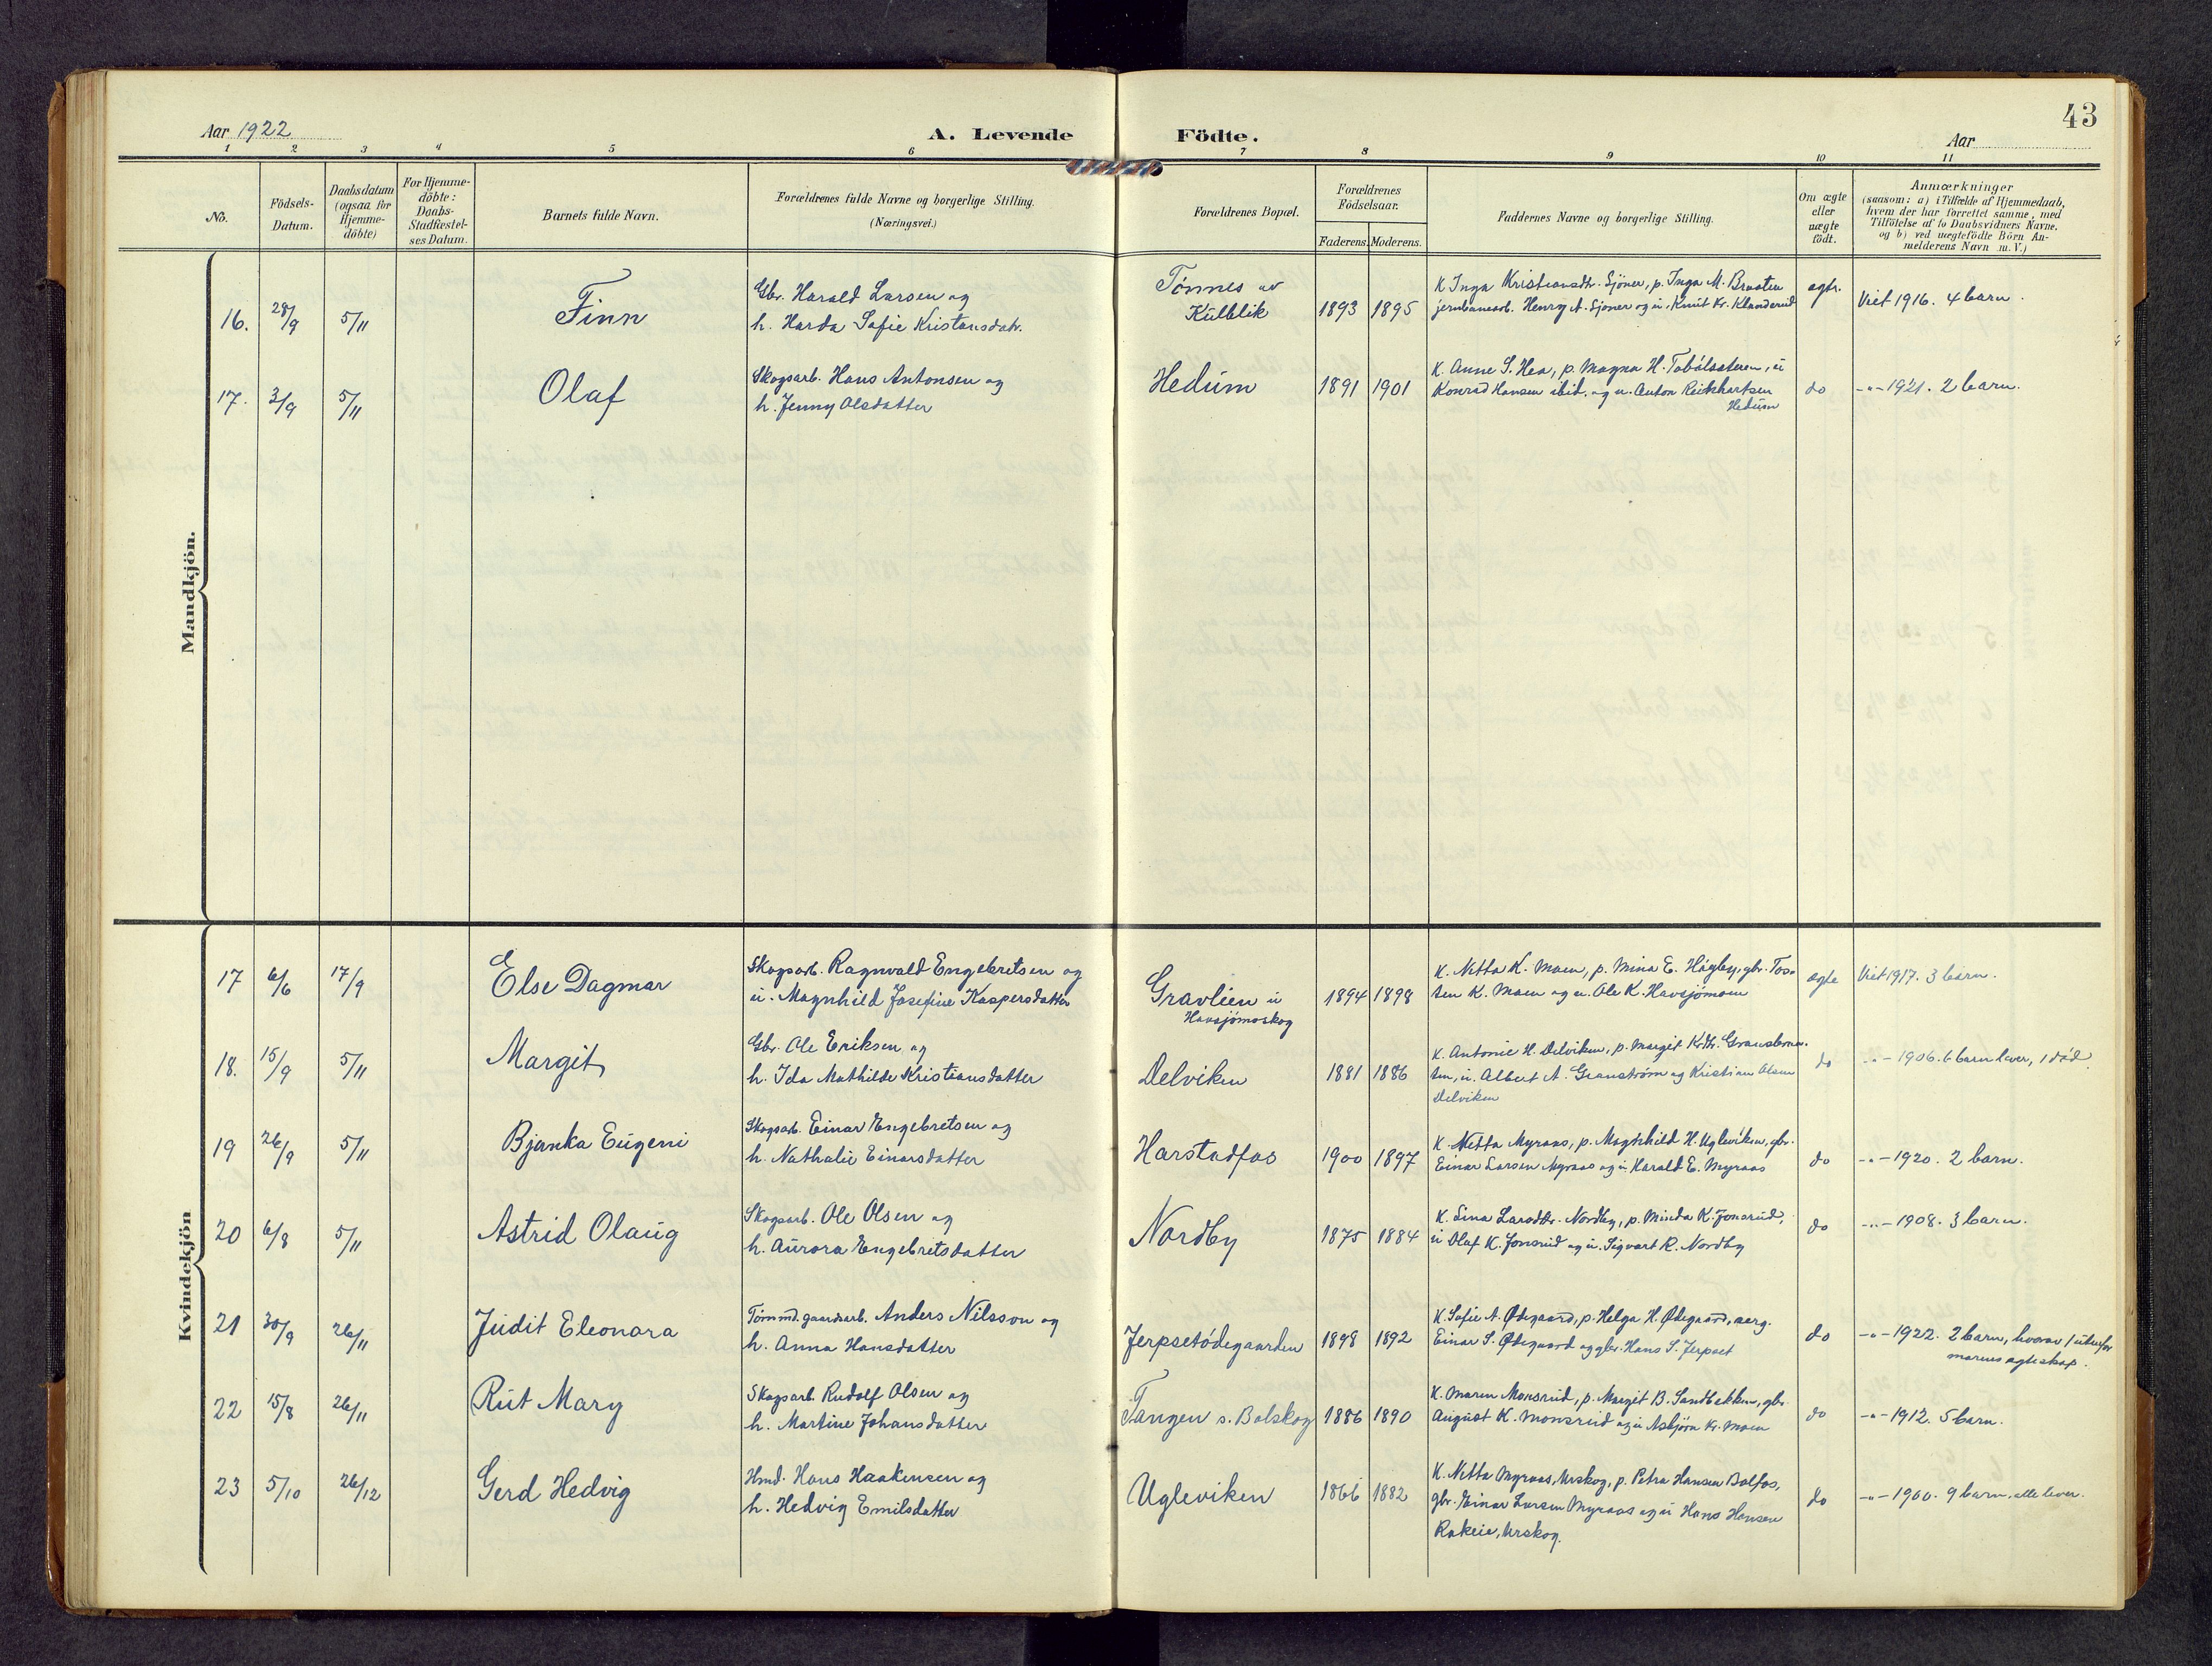 43
Aar 1922
A. Levende Födte.
Aar
1 2 3 4 5 6 7 8 9 10 11
No.
Födsels-
Datum.
Daabsdatum
(ogsaa for
Hjemme-
döbte)
For Hjemme-
döbte:
Daabs-
Stadfæstel-
ses Datum.
Barnets fulde Navn.
Forældrenes fulde Navne og borgerlige Stilling.
(Næringsvei.)
Forældrenes Bopæl.
Forældrenes
Födselsaar.
Faderens. Moderens.
Faddernes Navne og borgerlige Stilling.
Om ægte
eller
uægte
födt.
Anmærkninger
(saasom: a) i Tilfælde af Hjemmedaab,
hvem der har forrettet samme, med
Tilföielse af to Daabsvidners Navne,
og b) ved uægtefödte Börn An-
melderens Navn m. V.)
Mandkjön.
16. 28/9 5/11 Finn
Gbr. Harald Larsen og
h. Harda Sofie Kristansdatr.
Tønnes av
Kulblik
1893 1895
K. Inga Kristiansdtr. Sjöner, p. Inga M. Braaten
jernbanearb. Henry A. Sjöner og u. Knut Kr. Klanderud
ægte.
Viet 1916. 4 barn.
17. 3/9 5/11 Olaf
Skogsarb. Hans Antonsen og
h. Jenny Olsdatter
Hedum
1891 1901
K. Anne S. Hea, p. Magna H. u
Konrad Hansen ibid. og u. Anton
Hedum
do
-"- 1921. 2 barn.
Kvindekjön
17 6/6 17/9 Else Dagmar
Skogsarb. Ragnvald Engebretsen og
u. Magnhild Josefine Kaspersdatter
Gravlien u
Havsjömoskog
1894 1898
K. Netta K. Moen, p. Mina E. Högby, gbr. Tos-
ten K. Moen og u. Ole K. Havsjömoen
ægte
Viet 1917. 3 barn.
18. 15/9 5/11 Margit
Gbr. Ole Eriksen og
h. Ida Mathilde Kristiansdatter
Delviken
1881 1886
K. Antonie H. Delviken, p. Margit Kr.dtr.
ten, u. Albert A. Granström og Kristian Olsen
Delviken
do
-"- 1906. 6 barn lever, 1 död.
19 26/9 5/11 Bjanka Eugeni
Skogsarb. Einar Engebretsen og
h. Nathalie Einarsdatter
Harstadfos
1900 1897
K. Netta Myraas, p. Magnhild H. Ugleviken, gbr.
Einar Larsen Myraas og u. Harald E. Myraas
do
-"- 1920. 2 barn.
20 6/8 5/11 Astrid Olaug
Skogsarb. Ole Olsen og
h. Aurora Engebretsdatter
Nordby
1875 1884
K. Lina Larsdtr. Nordby, p. Minda K. Jonsrud,
u Olaf K. Jonsrud og u. Sigvart R. Nordby
do
-"- 1908. 3 barn.
21 30/9 26/11 Judit Eleonora
Tömmd. gaardsarb. Anders Nilsson og
h. Anna Hansdatter
Jerpsetödegaarden
1898 1892
K. Sofie A. Ødegaard, p. Helga H. Ødegaard,
Einar S. Ødegaard og gbr. Hans S. Jerpset
do
-"- 1922. 2 barn, hvorav 1 utenfor
morens ægteskap.
22 15/8 26/11 Rut Mary
Skogsarb. Rudolf Olsen og
h. Martine Johansdatter
Tangen s. Bolskog
1886 1890
K. Maren Monsrud, p. Margit B. Sandbekken, gbr.
August K. Monsrud og u Asbjörn Kr. Moen
do
-"- 1912. 5 barn.
23 5/10 26/12 Gerd Hedvig
Hmd. Hans Haakensen og
h. Hedvig Emilsdatter
Ugleviken
1866 1882
K. Netta Myraas, Urskog, p. Petra Hansen Bolfos,
gbr. Einar Larsen Myraas og u Hans Hansen
Rakeie, Urskog.
do
-"- 1900. 9 barn, alle lever.